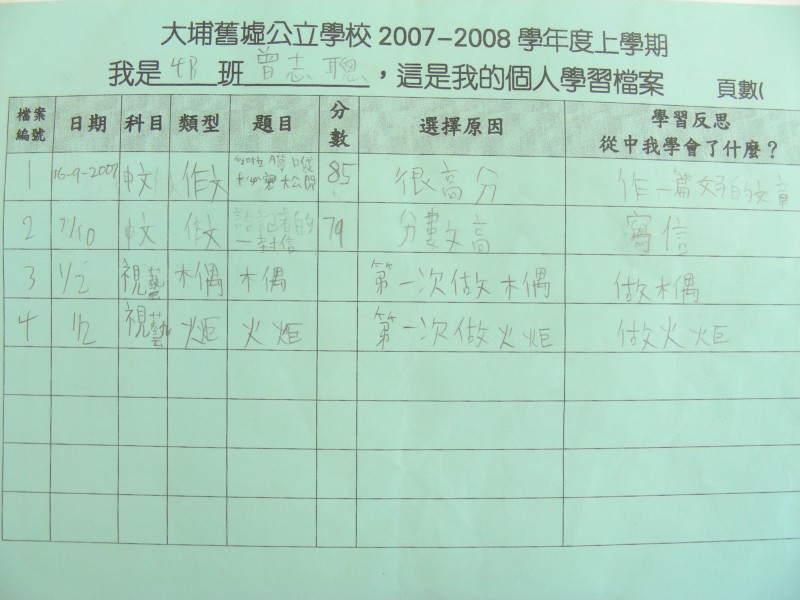 大埔舊墟公立學校 2007-2008 學年度上學期
我是 4B 班 曾志聰 ，這是我的個人學習檔案 頁數(
檔案編號 日期 科目 類型 題目 分數 選擇原因 學習反思 從中我學會了什麼？
1 16-9-2007 中文 作文 85 很高分 作一篇好的文章
2 7/10 中文 作文 記者的一封信 79 分數高 寫信
3 1/2 視藝 木偶 木偶 第一次做木偶 做木偶
4 1/2 視藝 火炬 火炬 第一次做火炬 做火炬